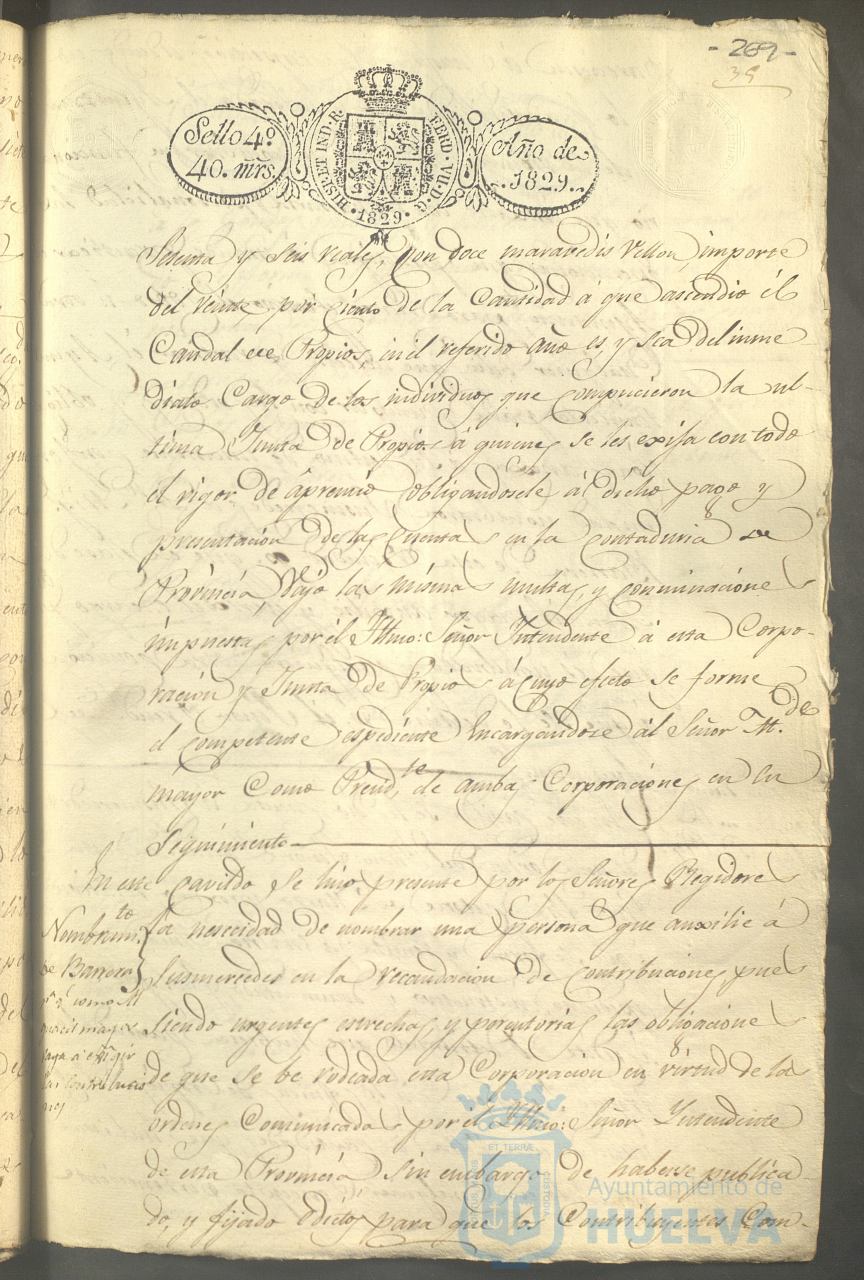 - 269 -
39
Sello 4º
40. mrs.
HISP. ET IND. R.
FERD. VII. D. G.
1829
Año de
1829.
Sesenta y seis reales, con doce maravedis vellon, importe
del veinte por ciento de la Cantidad á que ascendio el
Caudal de Propios, en el referido año es, y sea del inme
diato Cargo de los individuos que compusieron la ul-
tima Junta de Propios á quienes se les exija con todo
el rigor de apremio obligandosele al dicho pago y
presentacion de las Cuentas en la contaduria de
Provincia, bajo las mismas multas, y conminaciones
impuestas por el Yllmo: Señor Yntendente á esta Corpo-
racion y Junta de Propios á cuyo efecto se forme
el competente espediente Encargandose al Señor Alc.de
mayor Como Presid.te de ambas Corporaciones en su
Seguimiento
En este Cavildo se hizo presente por los Señores Regidores
la nesecidad de nombrar una persona que auxilie á
susmercedes en la recaudacion de contribuciones, pues
siendo urgentes estrechas, y perentorias las obligaciones
de que se be rodeada esta Corporacion en virtud de las
ordenes Comunicadas por el Yllmo: Señor Yntendente
de esta Provincia sin embargo de haberse publica-
do, y fijado Edictos para que los Contribuyentes Com-
Nombrami.to
de Barrera
p.a q.e como Al
guacil mayor
baya á exigir
las Contribucio
nes
ET TERRÆ
CUSTODIA
Ayuntamiento de
HUELVA